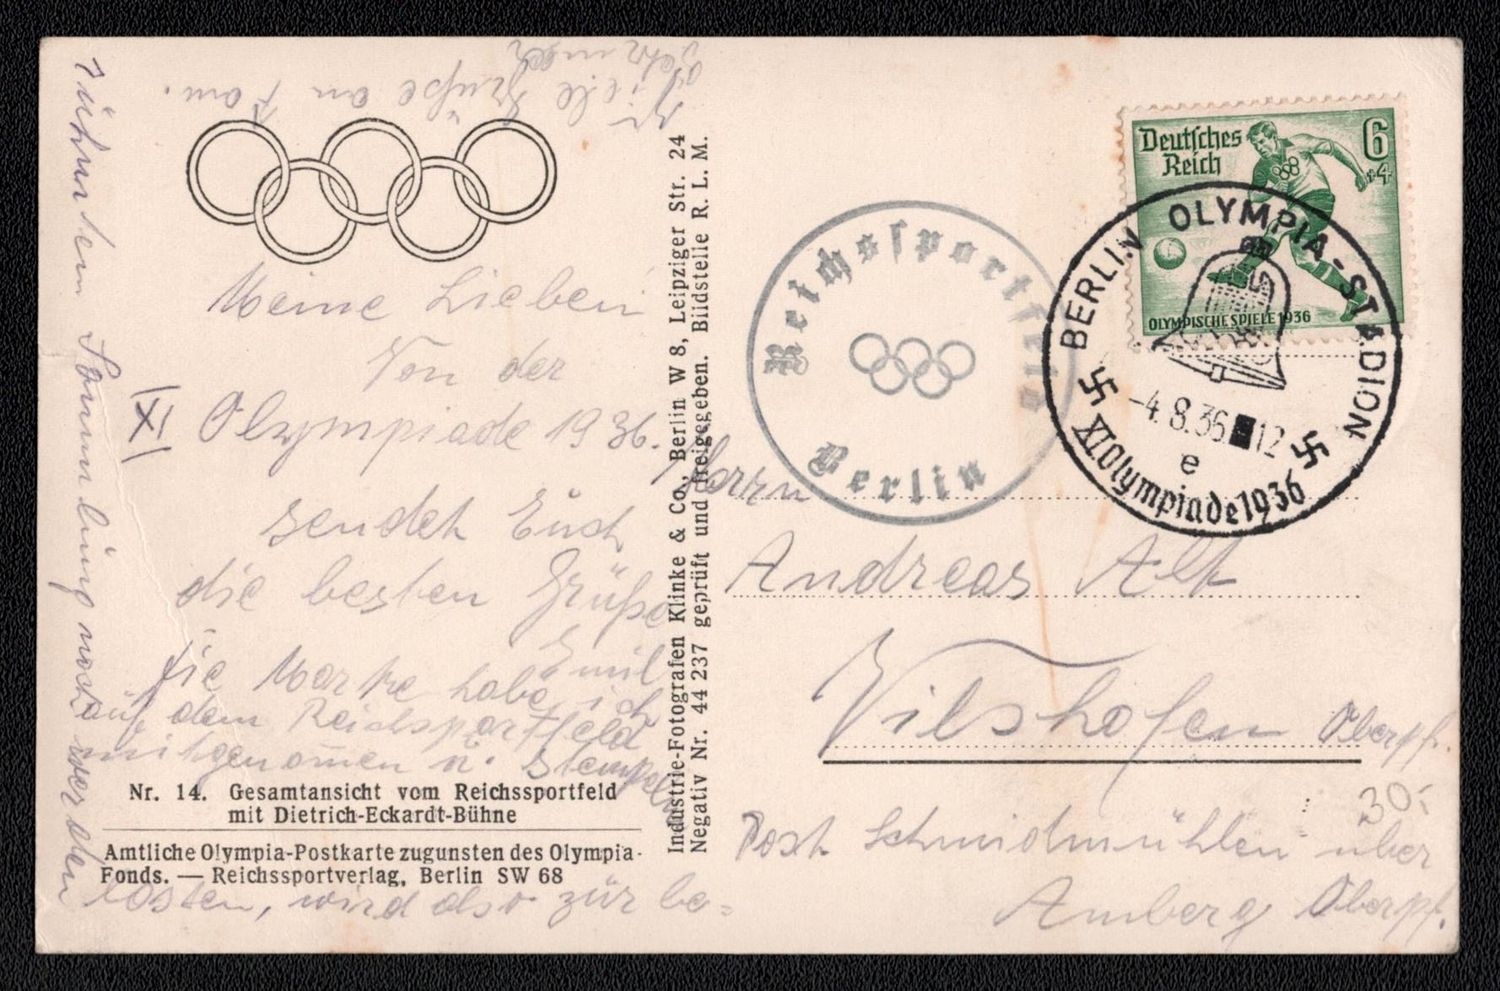 Viele Grüße an Fam.
Meine Lieben
Von der
XI Olympiade 1936.
sendet Euch
die besten Grüße
Emil
Die Marke habe ich
auf dem Reichsportfeld
mitgenomen u. Stempeln
lassen, wird also zur be=
rühmten Sammlung noch werden
Nr. 14. Gesamtansicht vom Reichssportfeld
mit Dietrich-Eckardt-Bühne
Amtliche Olympia-Postkarte zugunsten des Olympia-
Fonds. — Reichssportverlag, Berlin SW 68
Industrie-Fotografen Klinke & Co., Berlin W 8, Leipziger Str. 24
Negativ Nr. 44 237 geprüft und freigegeben. Bildstelle R. L. M.
Reichssportfeld
Berlin
Deutsches
Reich
6
+4
OLYMPISCHE SPIELE 1936
BERLIN OLYMPIA-STADION
-4.8.36 12
e
XI Olympiade 1936
Herrn
Andreas Alt
Vilshofen Oberpf.
30.-
Post Schmidmühlen über
Amberg Oberpf.